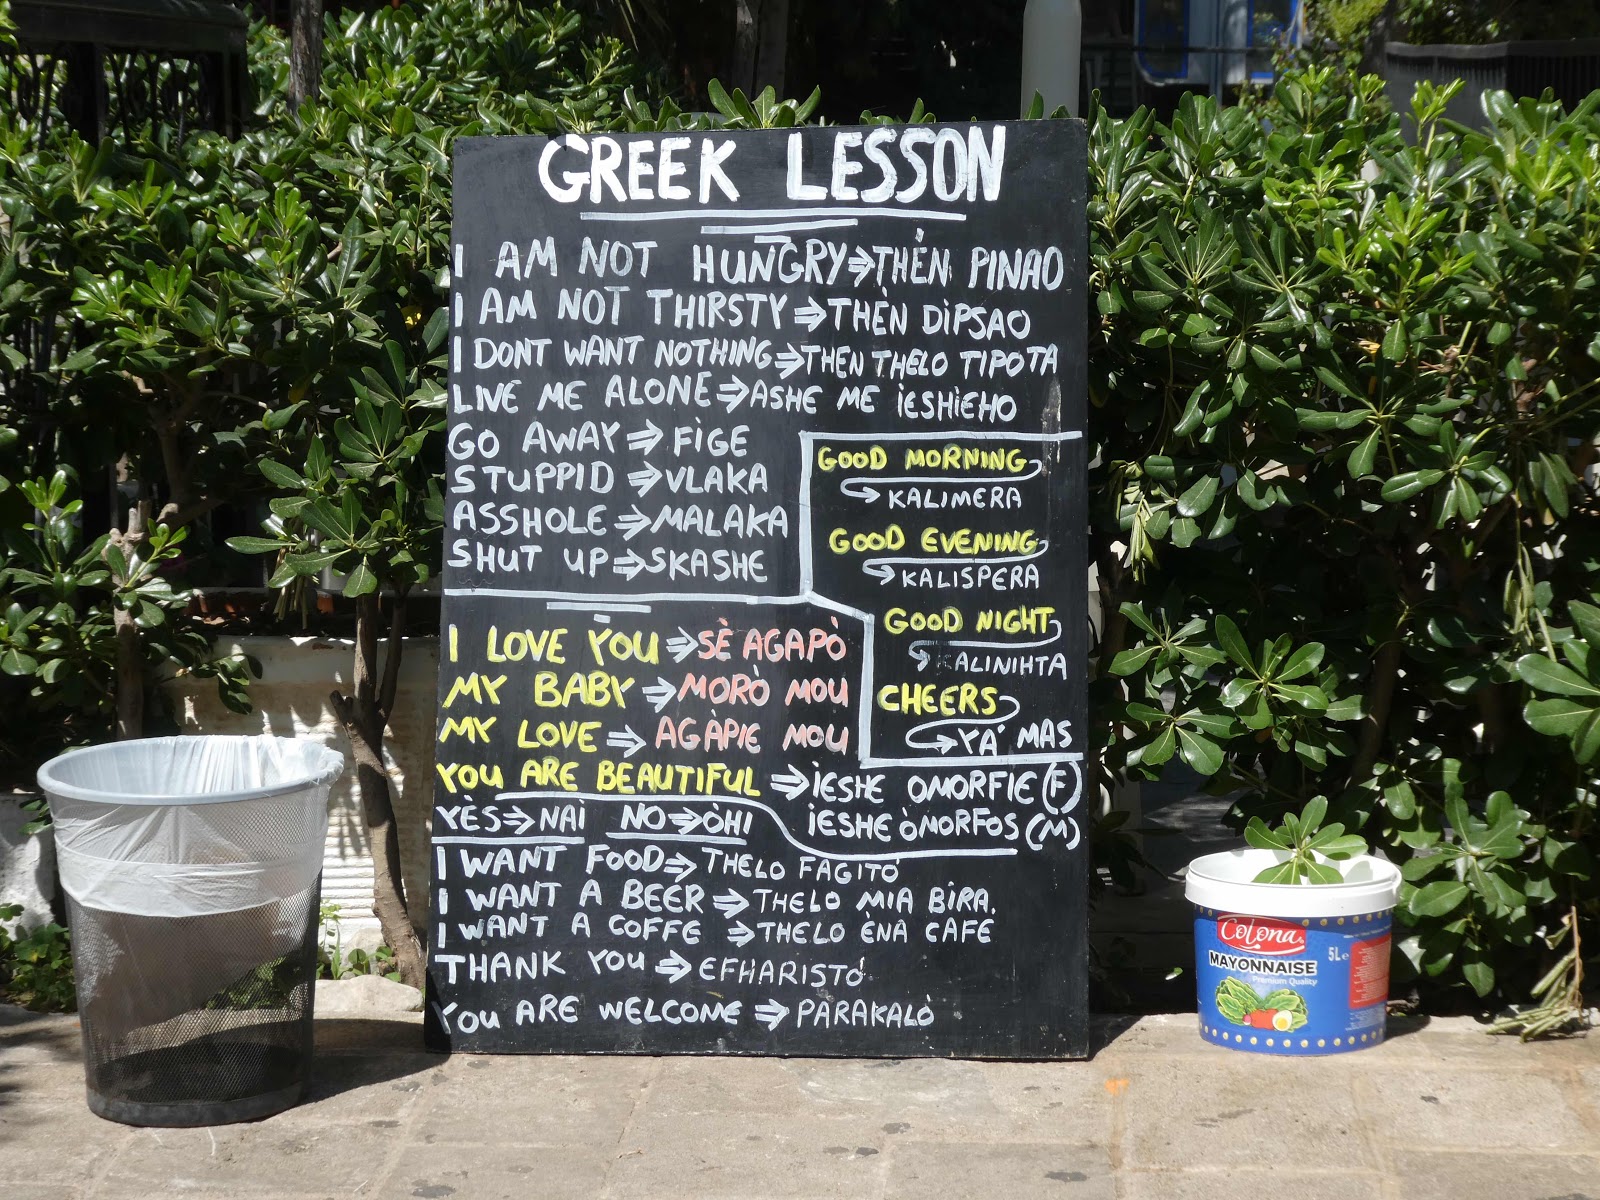 GREEK LESSON
I AM NOT HUNGRY⇒THÈN PINAO
I AM NOT THIRSTY⇒THÈN DiPSAO
I DONT WANT NOTHING⇒THEN THELO TIPOTA
LIVE ME ALONE⇒ASHE ME iESHiEHO
GO AWAY⇒FiGE
STUPPID⇒VLAKA
ASSHOLE⇒MALAKA
SHUT UP⇒SKASHE
GOOD MORNING
→KALIMERA
GOOD EVENING
→KALISPERA
GOOD NIGHT
→KALINIHTA
CHEERS
→YA' MAS
I LOVE YOU⇒SÈ AGAPÒ
MY BABY⇒MORÒ MOU
MY LOVE⇒AGÀPIE MOU
YOU ARE BEAUTIFUL⇒iESHE OMORFIE (F)
iESHE ÒMORFOS (M)
YÈS⇒NAÌ NO⇒ÒHI
I WANT FOOD⇒THELO FAGITÓ
I WANT A BEER⇒THELO MIA BÌRA.
I WANT A COFFE⇒THELO ÈNA CAFÉ
THANK YOU⇒EFHARISTÓ
YOU ARE WELCOME⇒PARAKALÒ
Colona
MAYONNAISE
Premium Quality
5Le